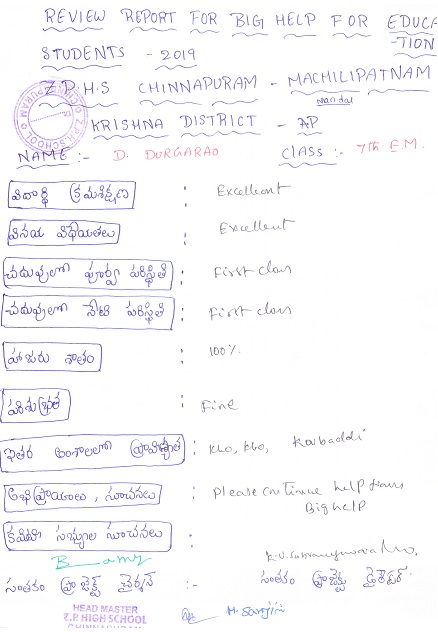 REVIEW REPORT FOR BIG HELP FOR EDUCA
-TION
STUDENTS - 2019
Z.P.H.S CHINNAPURAM - MACHILIPATNAM
mandal
KRISHNA DISTRICT - AP
NAME :- D. DURGARAO CLASS :- 7th E.M.
విద్యార్థి క్రమశిక్షణ : Excellent
వినయ విధేయతలు : Excellent
చదువులో పూర్వ పరిస్థితి : First class
చదువులో నేటి పరిస్థితి : First class
హాజరు శాతం : 100%
పరిశుభ్రత : Fine
ఇతర అంశాలలో ప్రావీణ్యత : kho, kho, Kabaddi
అభిప్రాయాలు, సూచనలు : Please continue help from
Bighelp
కమిటీ సభ్యుల సూచనలు :
సంతకం ప్రాజెక్ట్ చైర్మన్ :- సంతకం ప్రాజెక్టు డైరెక్టర్
HEAD MASTER
Z.P. HIGH SCHOOL
CHINNAPURAM